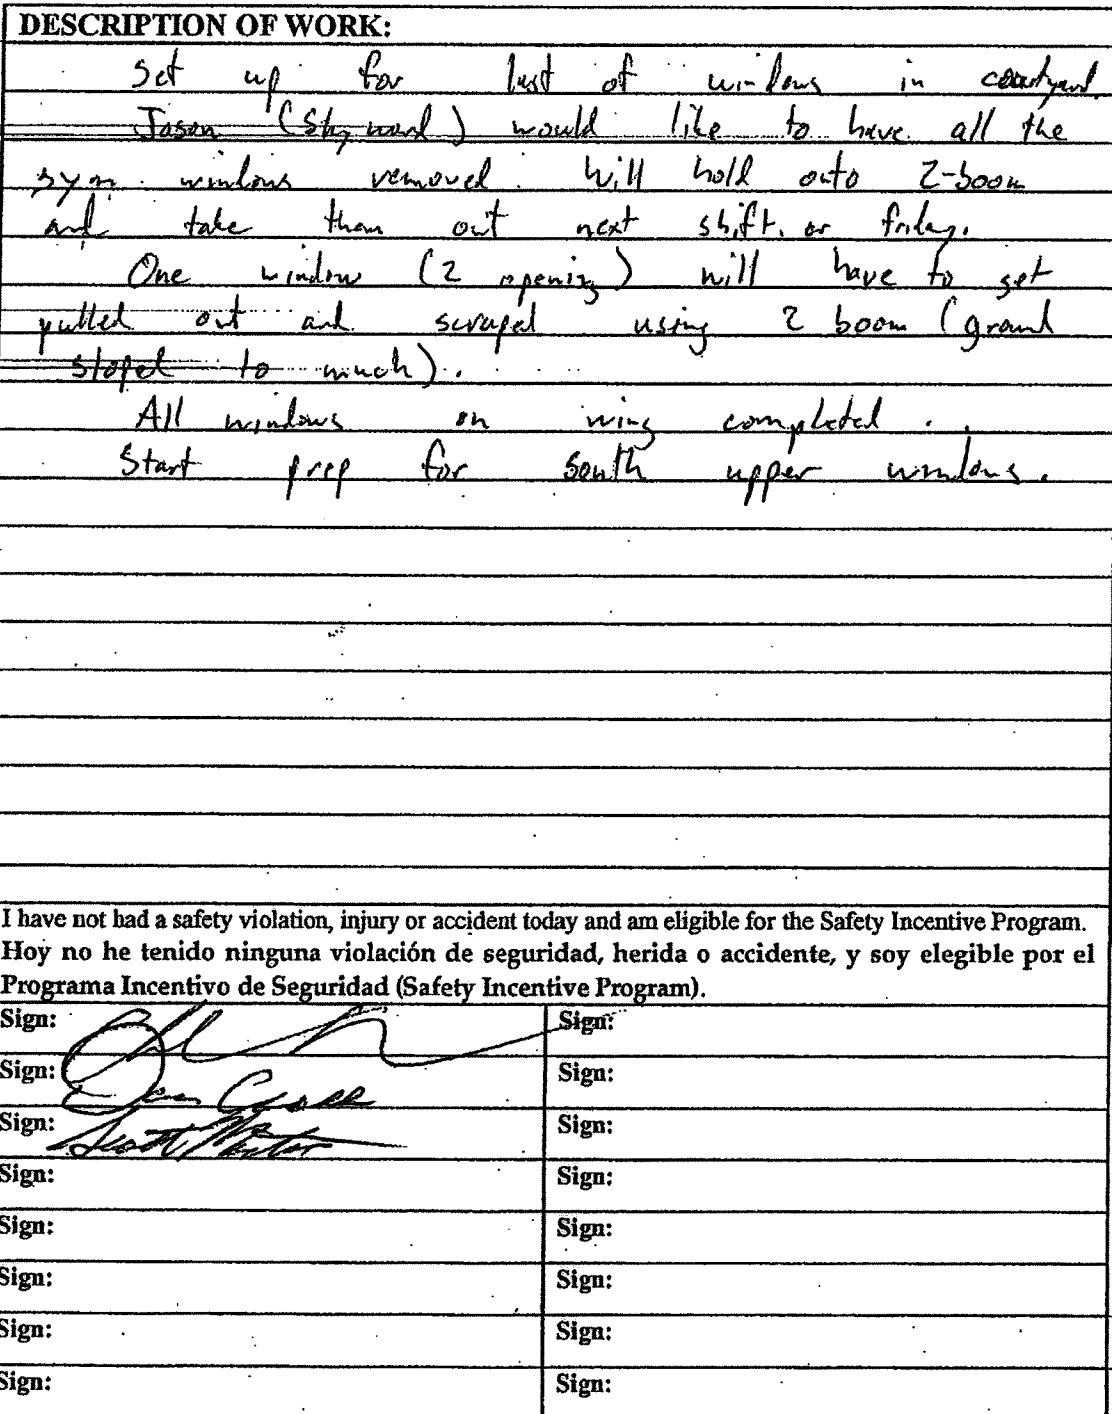 DESCRIPTION OF WORK:
Set up for last of windows in courtyard
Jason (Skyward) would like to have all the
gym windows removed. Will hold onto 2-boom
and take them out next shift. or friday.
One window (2 opening) will have to get
pulled out and scraped using 2 boom (ground
sloped to much).
All windows on wing completed.
Start prep for South upper windows.
I have not had a safety violation, injury or accident today and am eligible for the Safety Incentive Program.
Hoy no he tenido ninguna violación de seguridad, herida o accidente, y soy elegible por el
Programa Incentivo de Seguridad (Safety Incentive Program).
Sign: Sign:
Sign: Sign:
Sign: Scott Sign:
Sign: Sign:
Sign: Sign:
Sign: Sign:
Sign: Sign:
Sign: Sign: